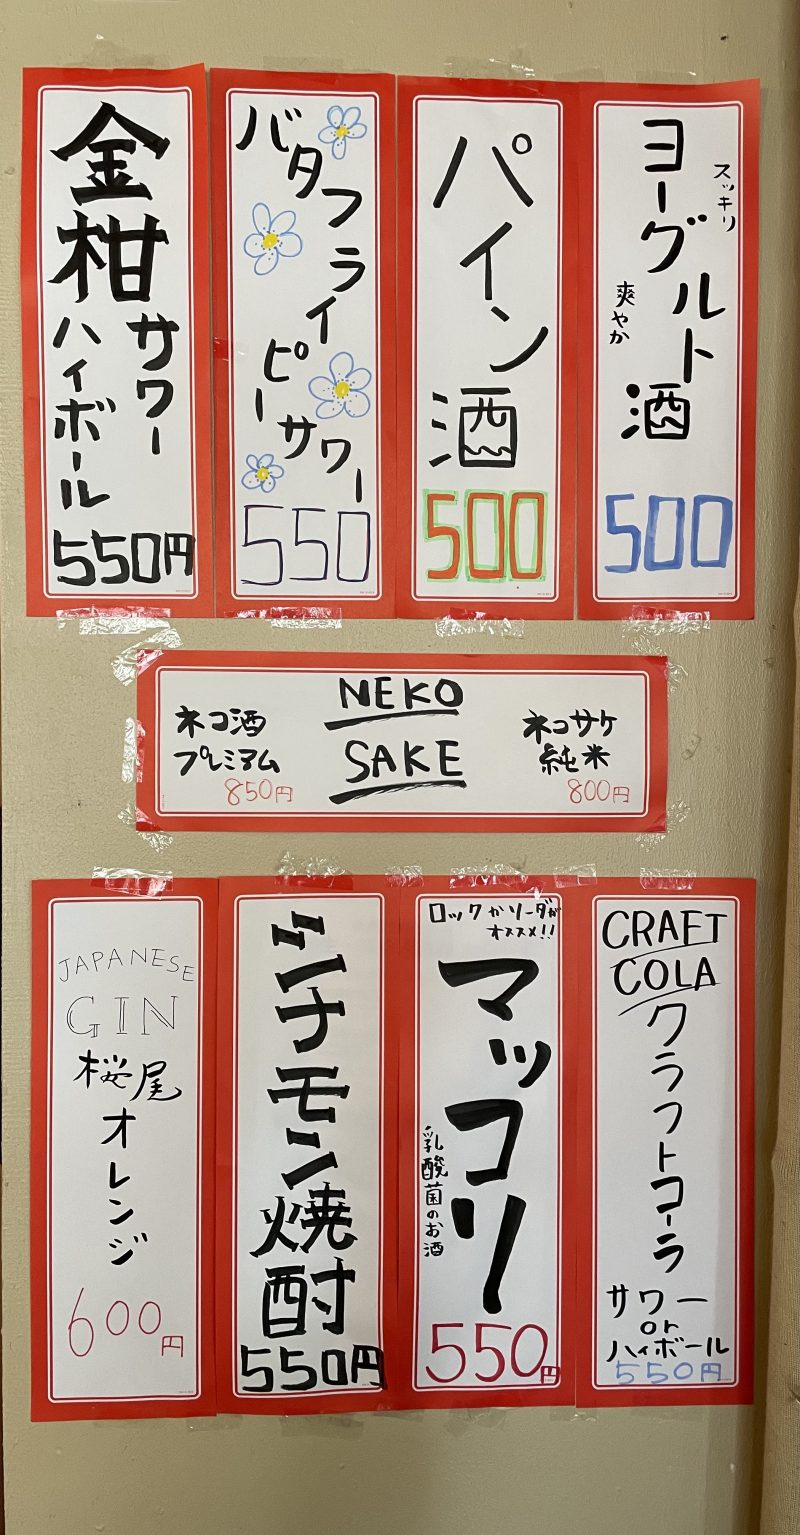 スッキリ
ヨーグルト酒
爽やか
500
パイン酒
500
バタフライ
ピーサワー
550
金柑
サワー
ハイボール
550円
NEKO
SAKE
ネコ酒
プレミアム
850円
ネコサケ
純米
800円
CRAFT
COLA
クラフトコーラ
サワー
or
ハイボール
550円
ロックかソーダが
オススメ!!
マッコリ
乳酸菌のお酒
550円
シナモン焼酎
550円
JAPANESE
GIN
桜尾
オレンジ
600円